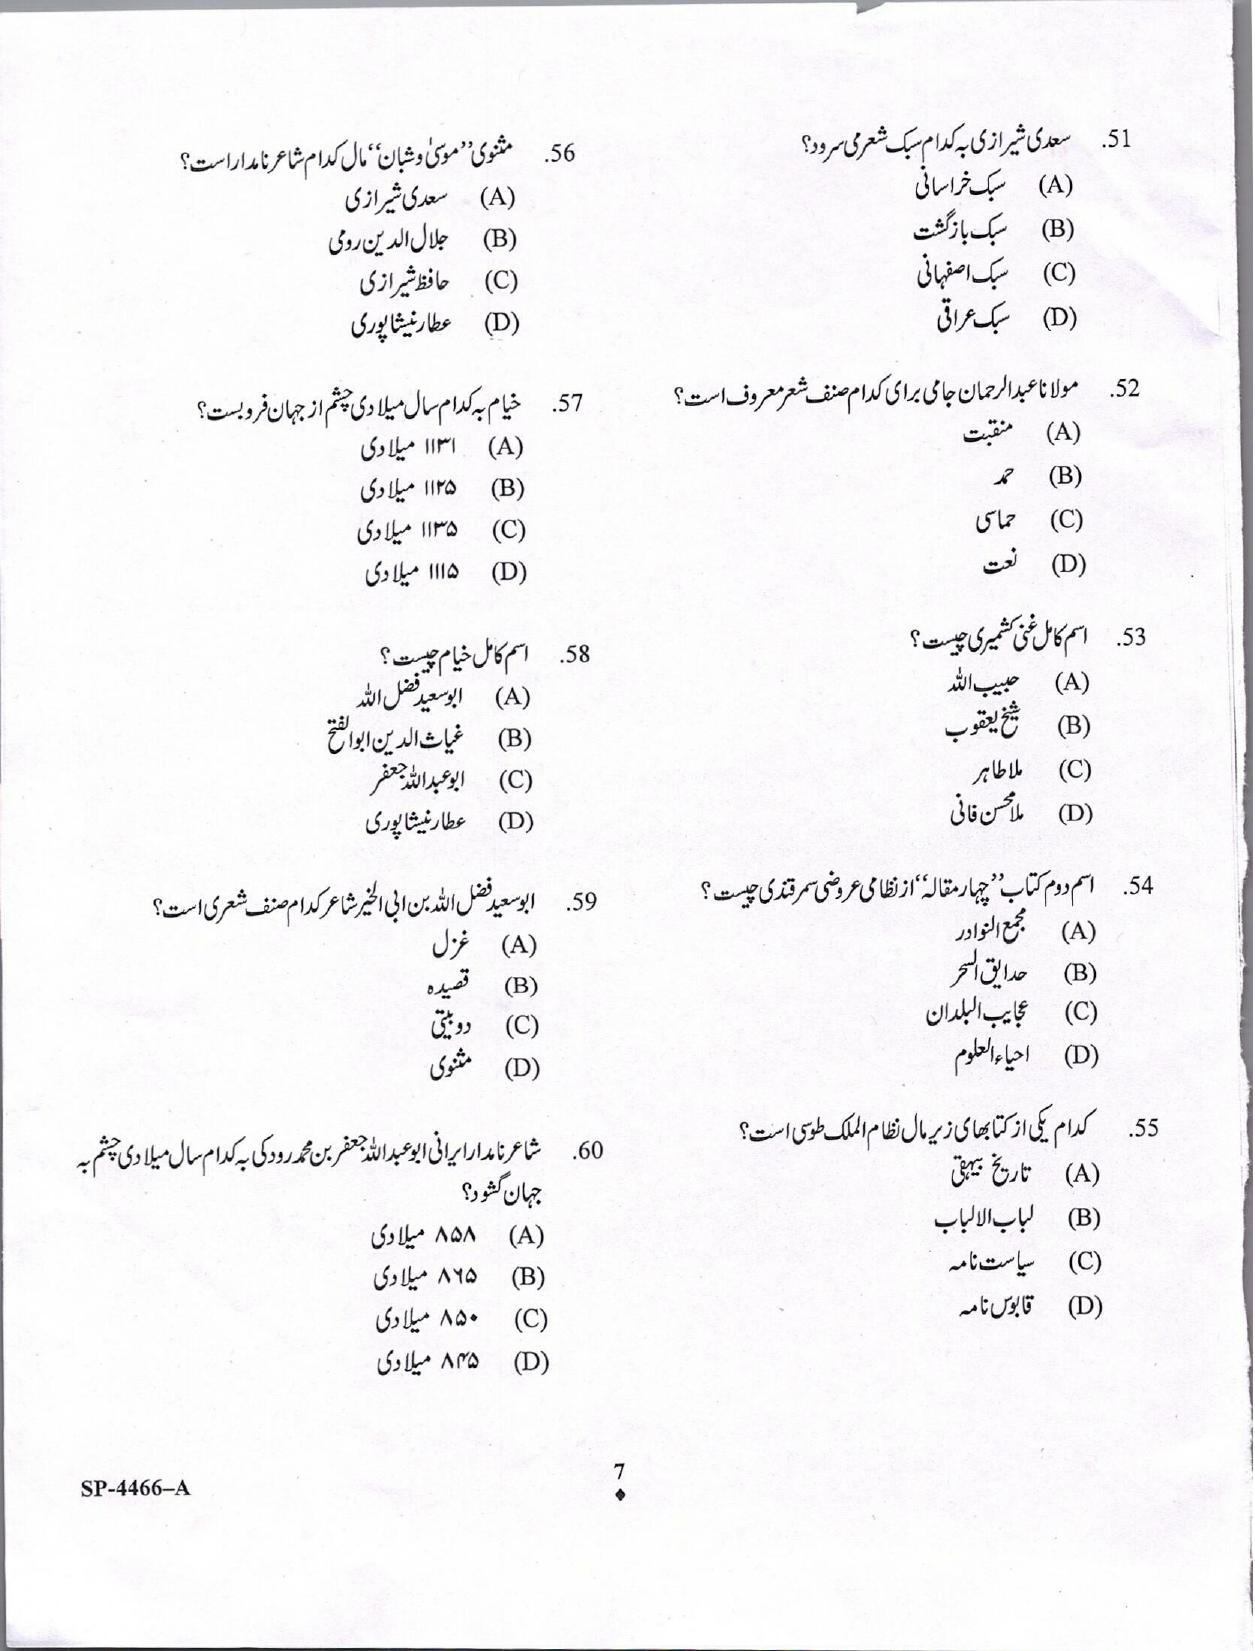 51. سعدی شیرازی به کدام سبک شعر می سرود؟
(A) سبک خراسانی
(B) سبک بازگشت
(C) سبک اصفهانی
(D) سبک عراقی
52. مولانا عبدالرحمان جامی برای کدام صنف شعر معروف است؟
(A) منقبت
(B) حمد
(C) حماسی
(D) نعت
53. اسم کامل غنی کشمیری چیست؟
(A) حبیب الله
(B) شیخ یعقوب
(C) ملا طاہر
(D) ملا محسن فانی
54. اسم دوم کتاب ”چهار مقاله“ از نظامی عروضی سمرقندی چیست؟
(A) مجمع النوادر
(B) حدایق السحر
(C) عجایب البلدان
(D) احیاء العلوم
55. کدام یکی از کتابهای زیر مال نظام الملک طوسی است؟
(A) تاریخ بیہقی
(B) لباب الالباب
(C) سیاست نامه
(D) قابوس نامه
56. مثنوی ”موسیٰ و شبان“ مال کدام شاعر نامدار است؟
(A) سعدی شیرازی
(B) جلال الدین رومی
(C) حافظ شیرازی
(D) عطار نیشاپوری
57. خیام به کدام سال میلادی چشم از جهان فروبست؟
(A) ۱۱۳۱ میلادی
(B) ۱۱۲۵ میلادی
(C) ۱۱۳۵ میلادی
(D) ۱۱۱۵ میلادی
58. اسم کامل خیام چیست؟
(A) ابوسعید فضل الله
(B) غیاث الدین ابوالفتح
(C) ابوعبدالله جعفر
(D) عطار نیشاپوری
59. ابوسعید فضل الله بن ابی الخیر شاعر کدام صنف شعری است؟
(A) غزل
(B) قصیده
(C) دوبیتی
(D) مثنوی
60. شاعر نامدار ایرانی ابوعبدالله جعفر بن محمد رودکی به کدام سال میلادی چشم به
جهان گشود؟
(A) ۸۵۸ میلادی
(B) ۸۶۵ میلادی
(C) ۸۵۰ میلادی
(D) ۸۴۵ میلادی
SP-4466–A
7